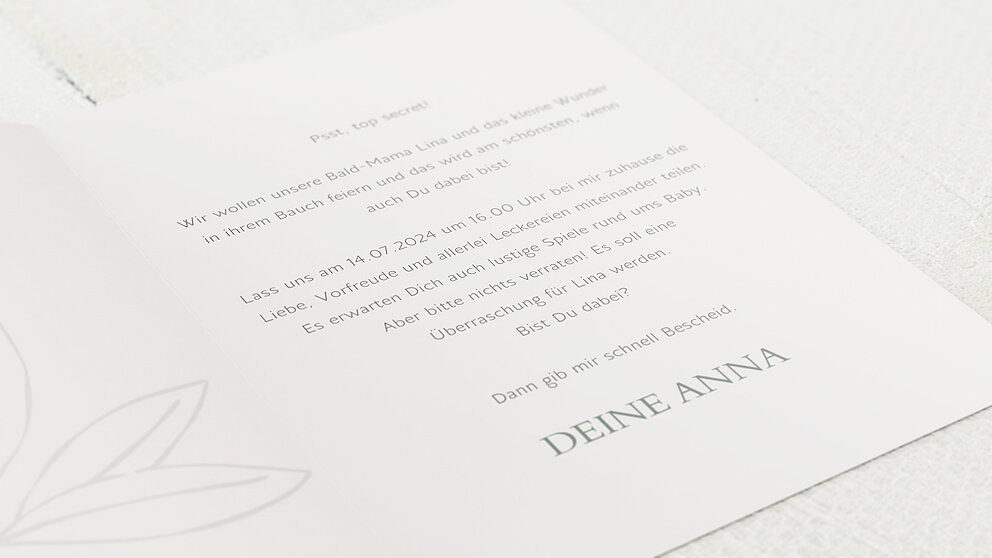 Psst, top secret!
Wir wollen unsere Bald-Mama Lina und das kleine Wunder
in ihrem Bauch feiern und das wird am schönsten, wenn
auch Du dabei bist!
Lass uns am 14.07.2024 um 16.00 Uhr bei mir zuhause die
Liebe, Vorfreude und allerlei Leckereien miteinander teilen.
Es erwarten Dich auch lustige Spiele rund ums Baby.
Aber bitte nichts verraten! Es soll eine
Überraschung für Lina werden.
Bist Du dabei?
Dann gib mir schnell Bescheid.
DEINE ANNA